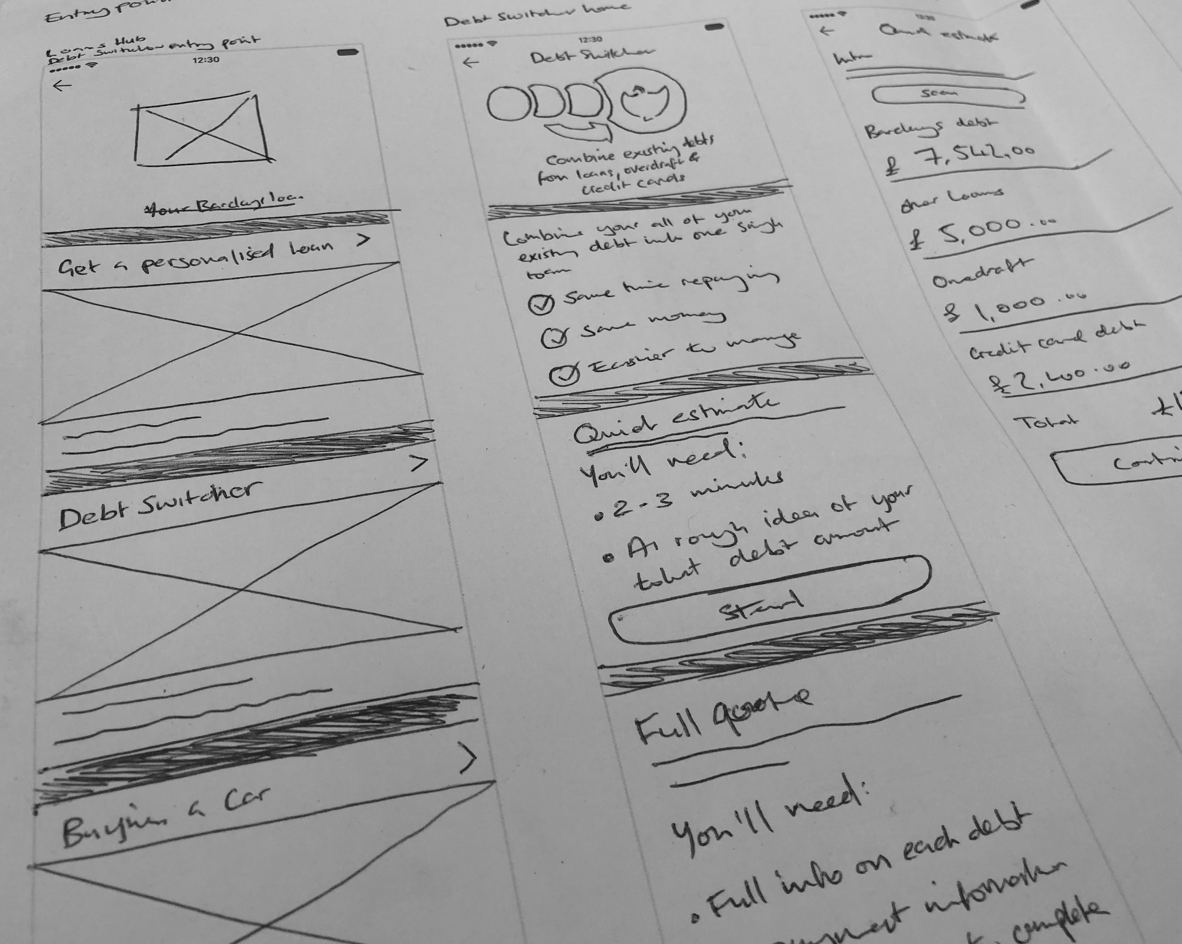 Entry
Loans Hub
Debt Switcher entry point
12:30
Your Barclays loan
Get a personalised loan >
Debt Switcher >
Buying a Car >
Debt Switcher home
12:30
Debt Switcher
Combine existing debts
from loans, overdraft &
credit cards
Combine your all of your
existing debt into one single
loan
Save time repaying
Save money
Easier to manage
Quick estimate
You'll need:
• 2-3 minutes
• A rough idea of your
total debt amount
Start
Full quote
You'll need:
• Full info on each debt
information
complete
12:30
Quick estimate
Intro
Scan
Barclays debt
£ 7,542.00
Other loans
£ 5,000.00
Overdraft
£ 1,000.00
Credit card debt
£2,400.00
Total